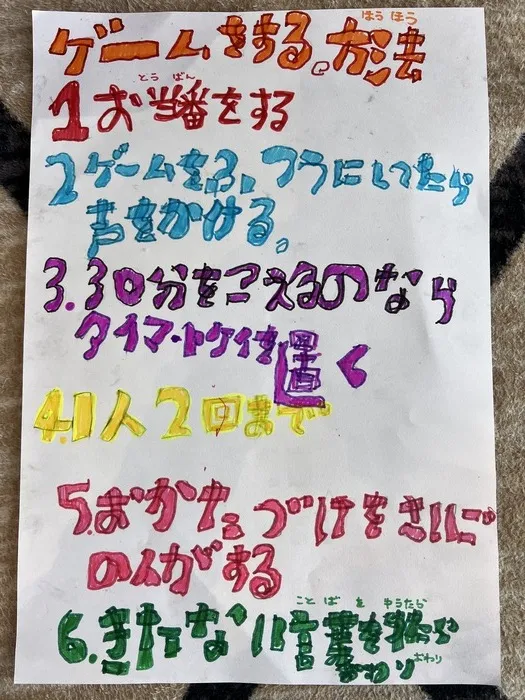 ほうほう
ゲームをする。方法
とうばん
1お当番をする
2ゲームをふつうにしてたら
声をかける。
3.30分をこえるのなら
タイマ・トケイを置く
4.1人2回まで
5.おかたづけをさいご
の人がする
ことば を ゆうたら
6.きたない言葉を
おわり おわり